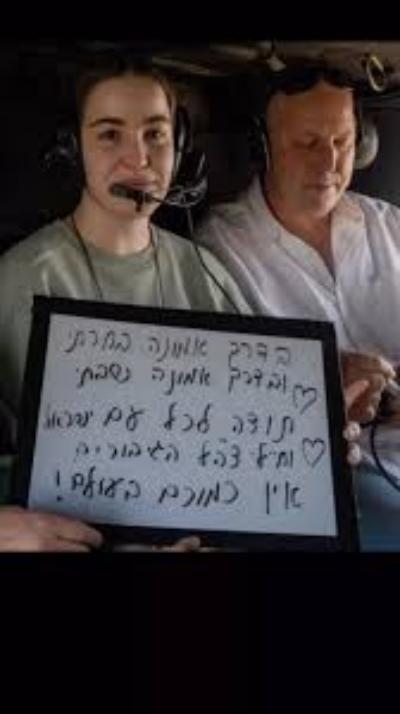 בדרך אמונה בחרתי
ובדרך אמונה שבתי
תודה לכל עם ישראל
וחילי צה"ל הגיבורים
אין כמוכם בעולם!